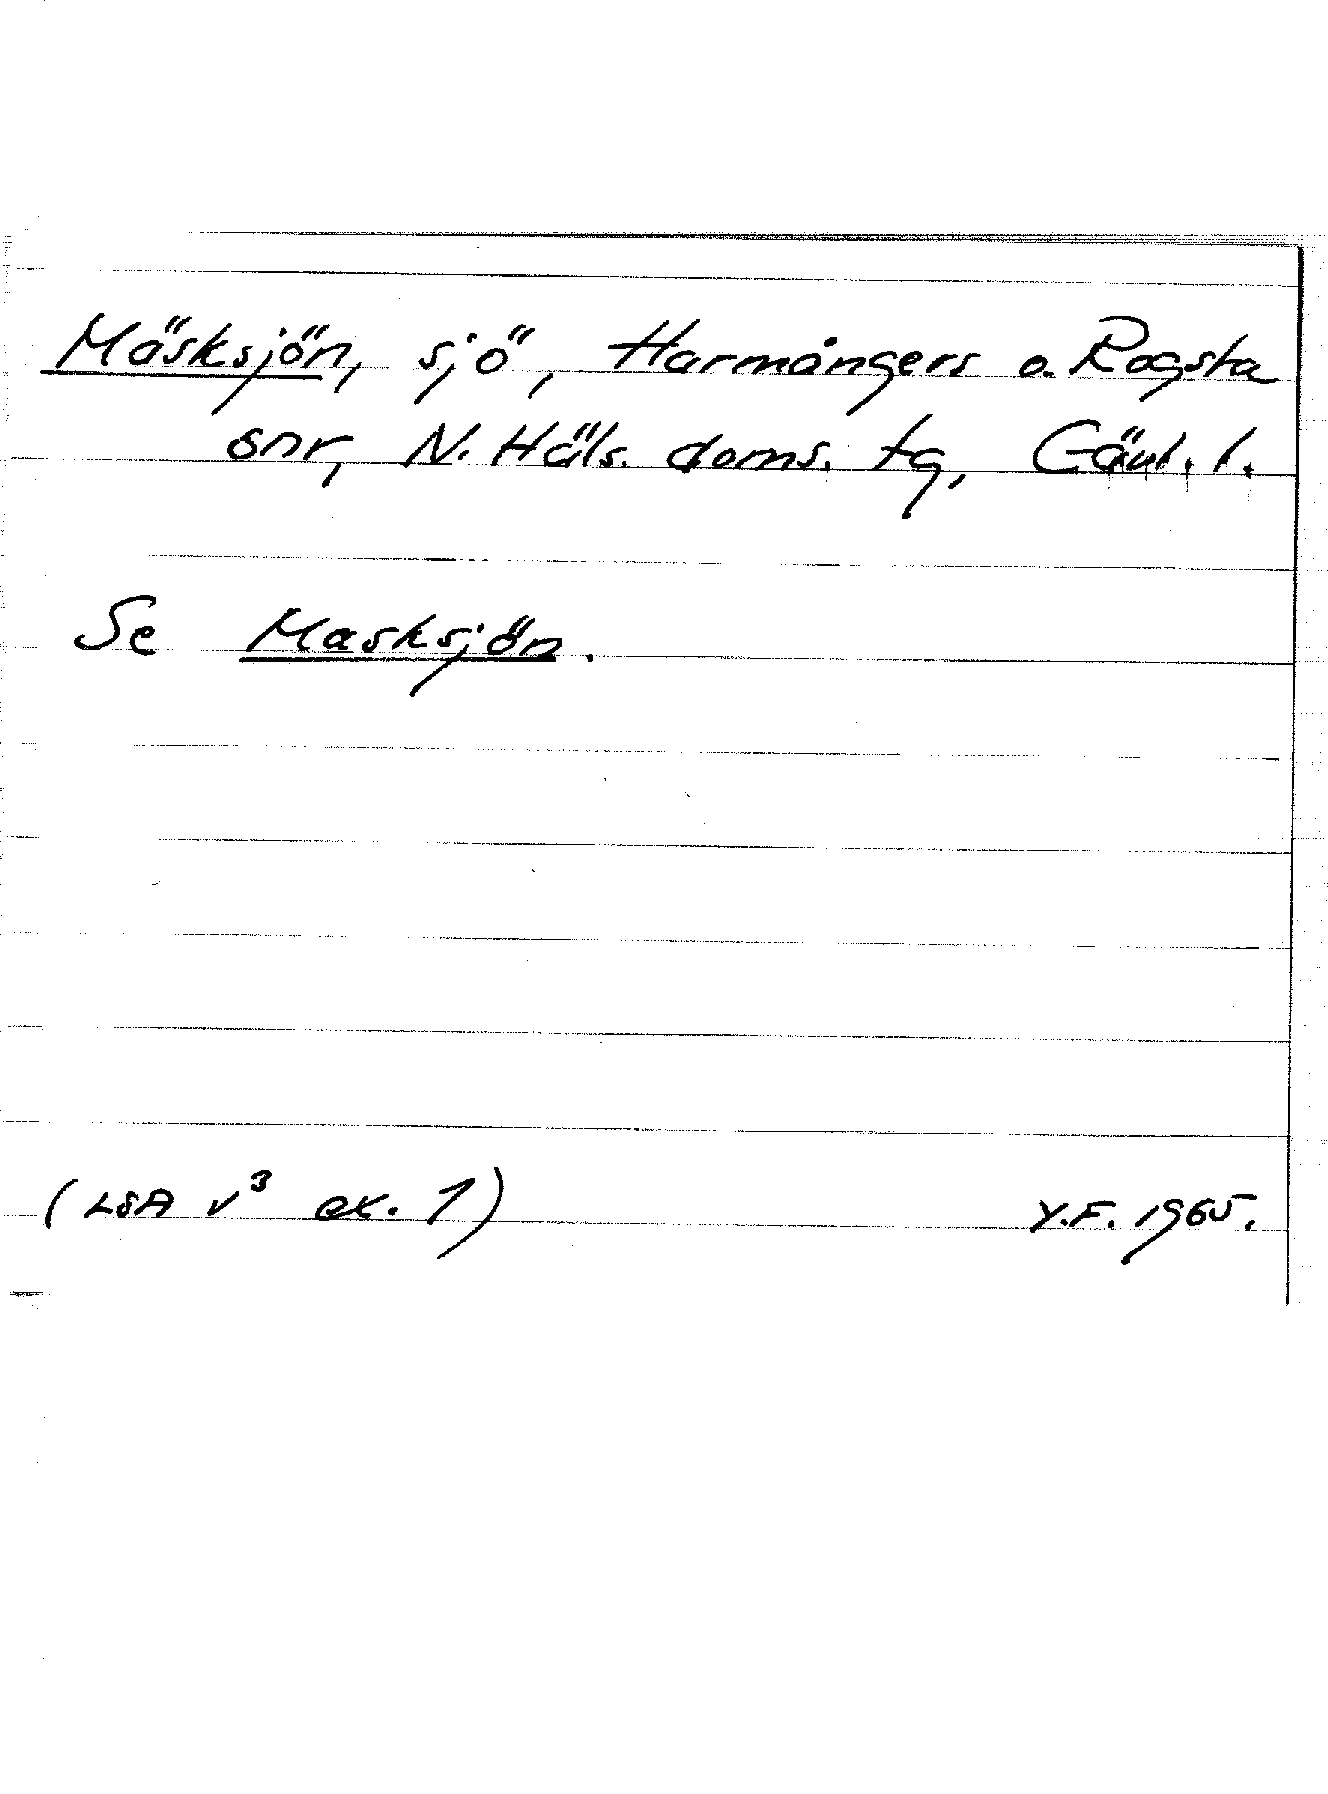 Mäsksjön, sjö, Harmångers o. Rogsta
snr, N. Häls. doms. tg, Gävl. l.
Se Masksjön.
(LSA v³ ek. 1) Y.F. 1965.